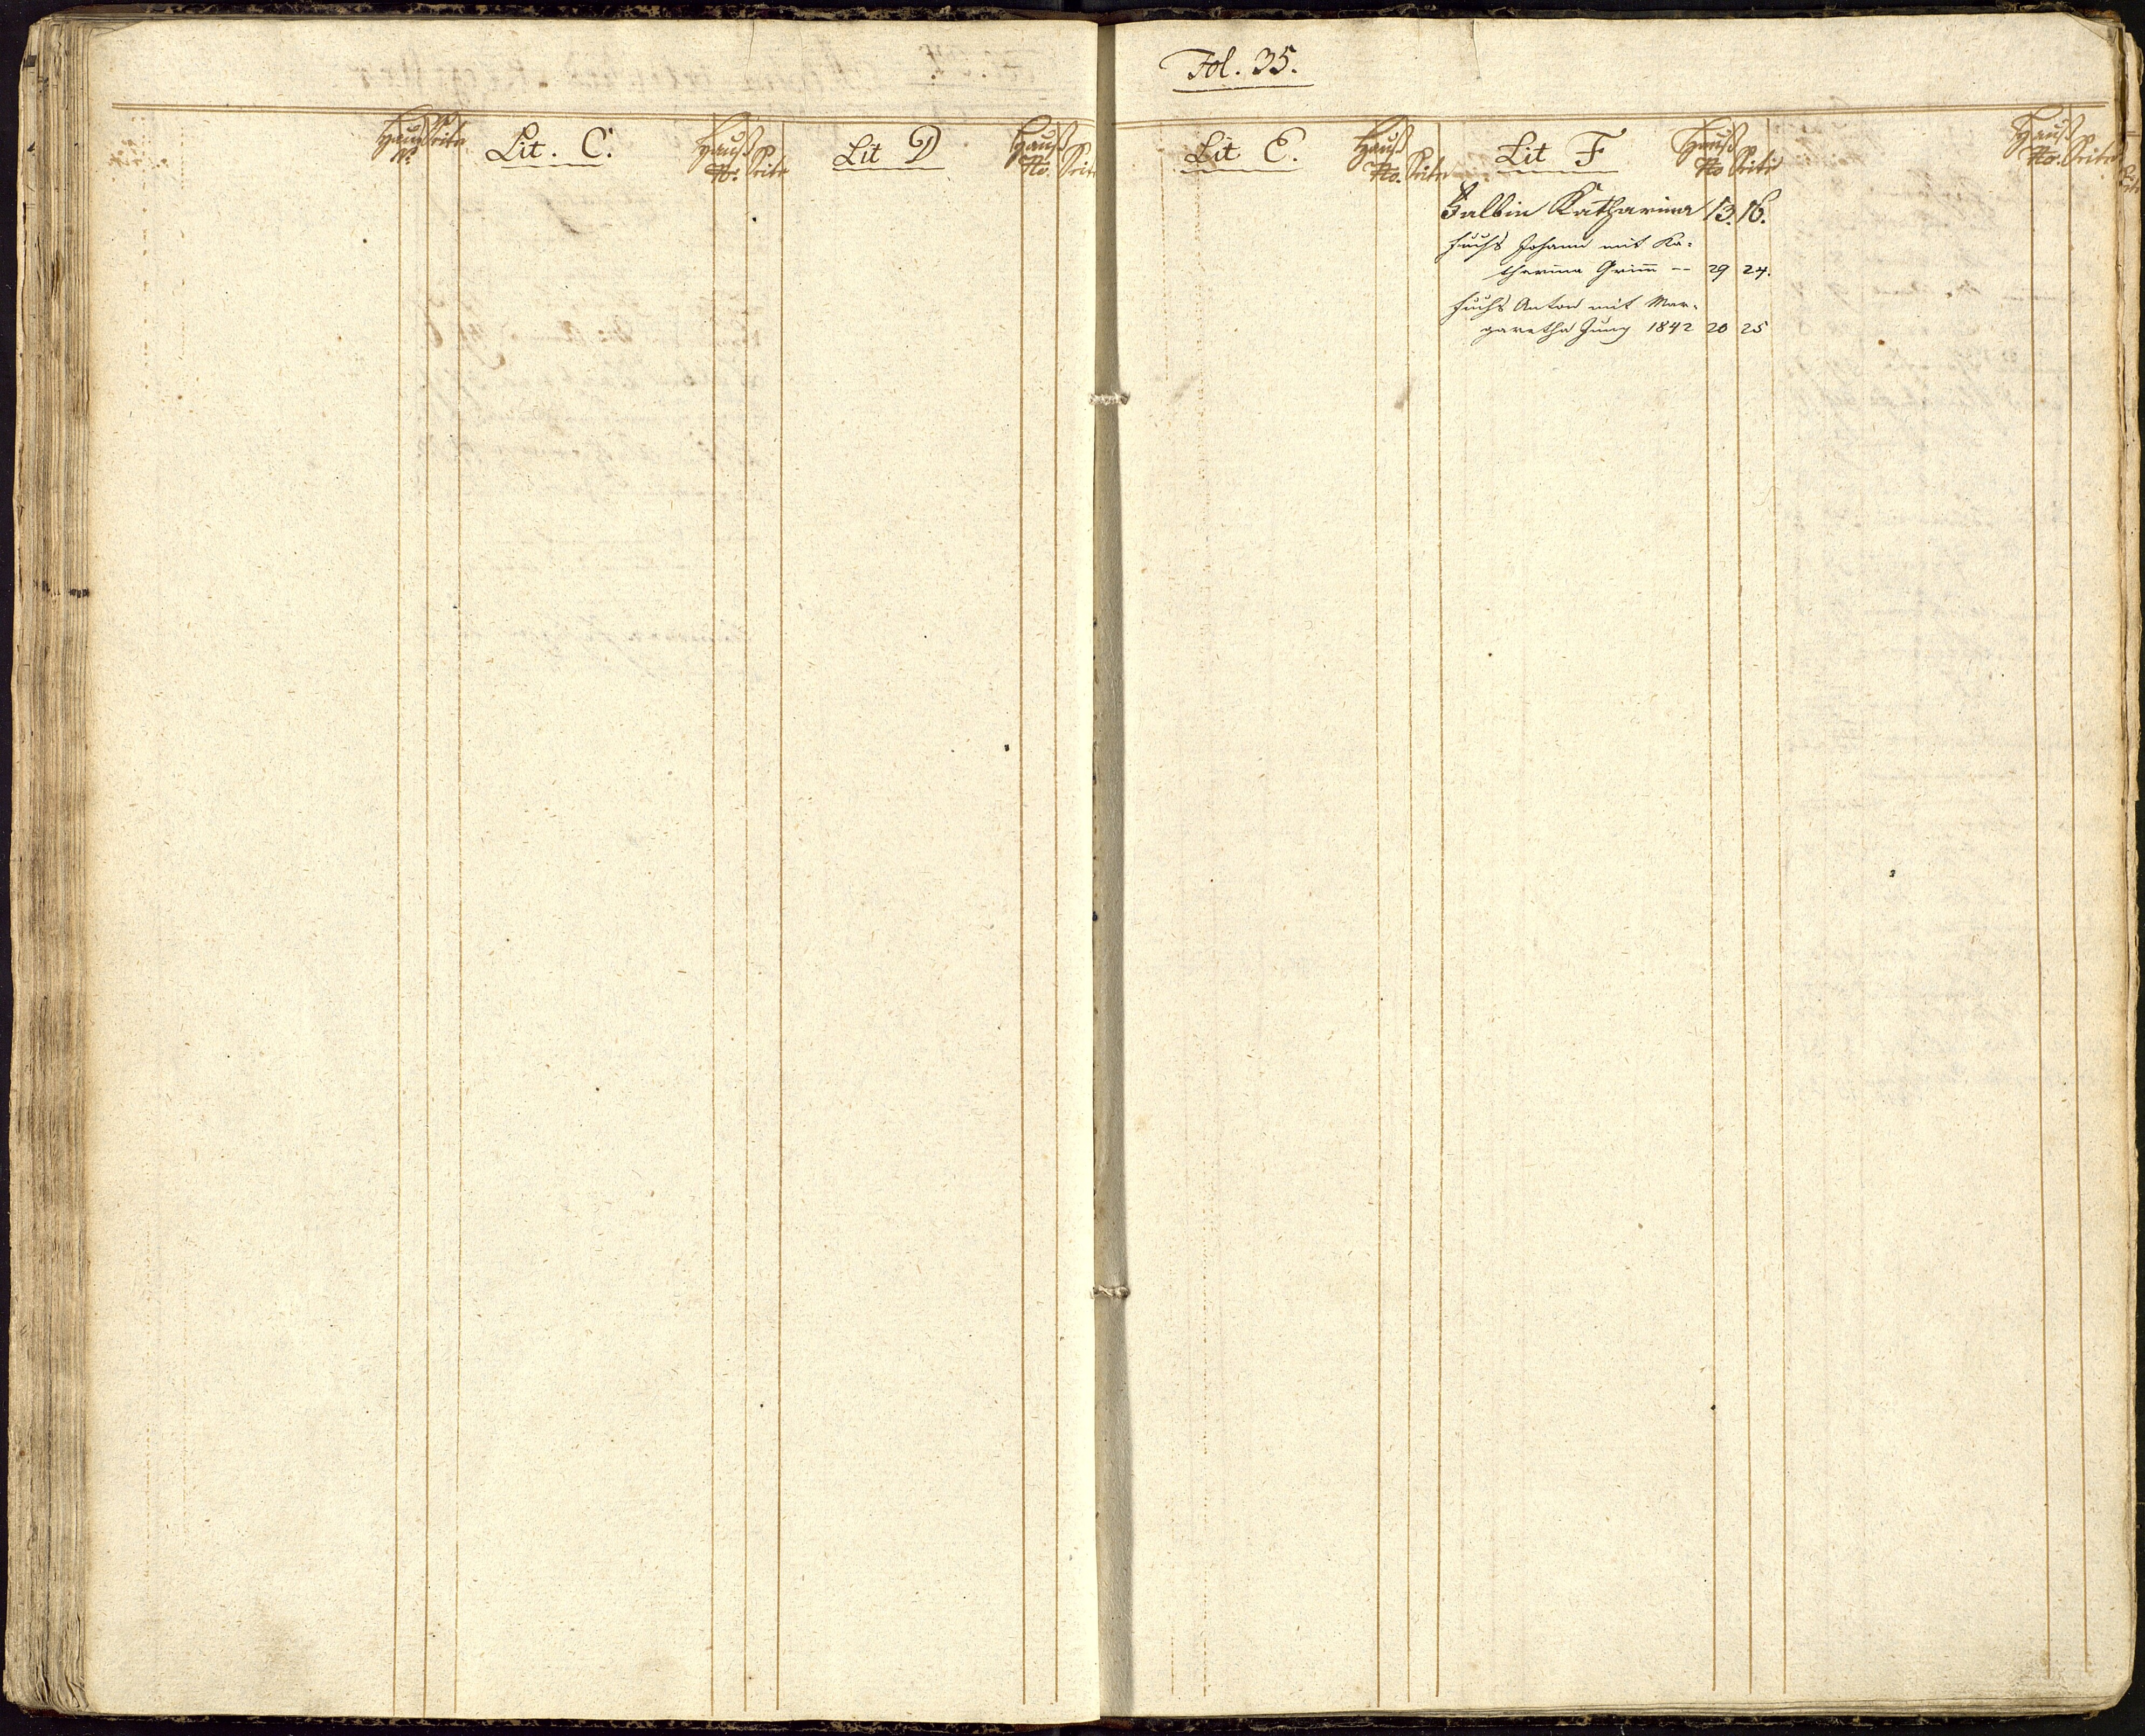 Fol. 35.
Hauß Nro. Seite
Lit. C.
Hauß Nro. Seite
Lit D
Hauß No. Seite
Lit E.
Hauß No. Seite
Lit F
Hauß No Seite
Hauß No. Seite
Falbin Katharina 13. 16.
Fuchs Johann mit Ka-
tharina Grim̅ -- 29 24.
Fuchs Anton mit Mar-
garetha Jung 1842 20 25